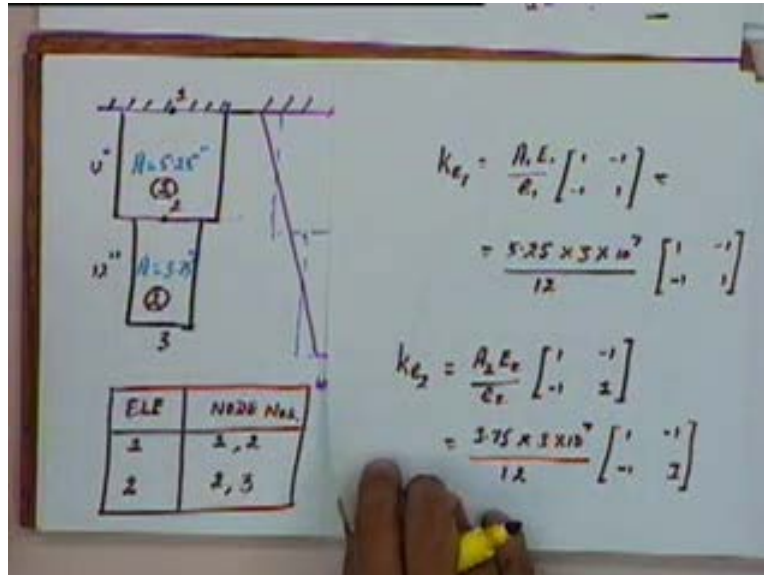 1
A=5.25"
①
2
12"
A=3.75"
②
3
ELE NODE Nos.
1 1, 2
2 2, 3
Ke₁ = A₁E₁/ℓ₁ [1 -1; -1 1] =
= 5.25 × 3 × 10⁷/12 [1 -1; -1 1]
Ke₂ = A₂E₂/ℓ₂ [1 -1; -1 1]
= 3.75 × 3 × 10⁷/12 [1 -1; -1 1]